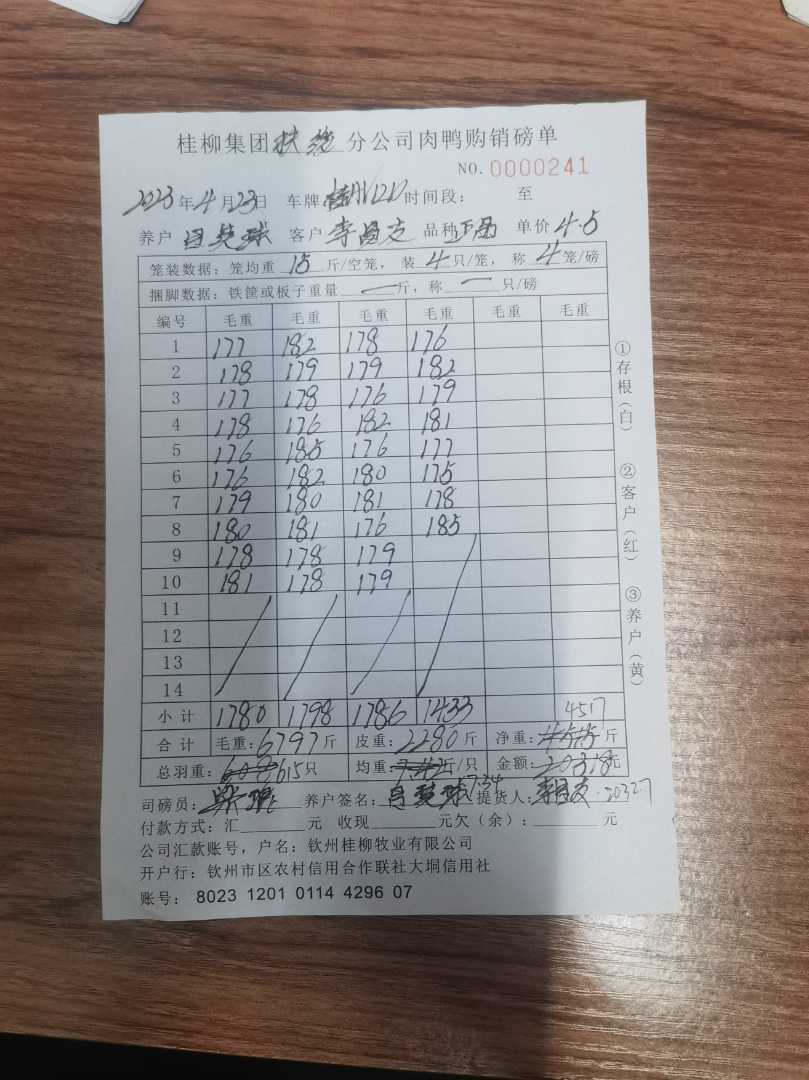 桂柳集团扶绥分公司肉鸭购销磅单
NO. 0000241
2023年4月23日 车牌 时间段： 至
养户 客户 李昌友 品种 单价 4.5
笼装数据：笼均重 15 斤/空笼，装 4 只/笼，称 4 笼/磅
捆脚数据：铁筐或板子重量 — 斤，称 — 只/磅
编号 毛重 毛重 毛重 毛重 毛重 毛重
1 177 182 178 176
2 178 179 179 182
3 177 178 176 179
4 178 176 182 181
5 176 185 176 177
6 176 182 180 175
7 179 180 181 178
8 180 181 176 185
9 178 178 179
10 181 178 179
11
12
13
14
小计 1780 1798 1786 1433 4517
合计 毛重：6797斤 皮重：2280斤 净重：4515斤
总羽重：608 615只 均重：7.42斤/只 金额：20318元
7.34 20327
司磅员： 养户签名： 提货人：李昌友
付款方式：汇 元 收现 元欠（余）： 元
公司汇款账号，户名：钦州桂柳牧业有限公司
开户行：钦州市区农村信用合作联社大垌信用社
账号： 8023 1201 0114 4296 07
①存根（白） ②客户（红） ③养户（黄）